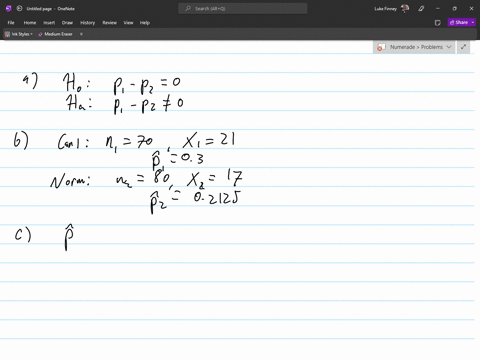 Untitled page - OneNote
Search (Alt+Q)
Luke Finney
File Home Insert Draw History Review View Help
Editing Share
Ink Styles Medium Eraser
Numerade > Problems
a) H₀: p₁ - p₂ = 0
Hₐ: p₁ - p₂ ≠ 0
b) n₁ = 70, X₁ = 21
p̂₁ = 0.3
Norm: n₂ = 80, X₂ = 17
p̂₂ = 0.2125
c) p̂